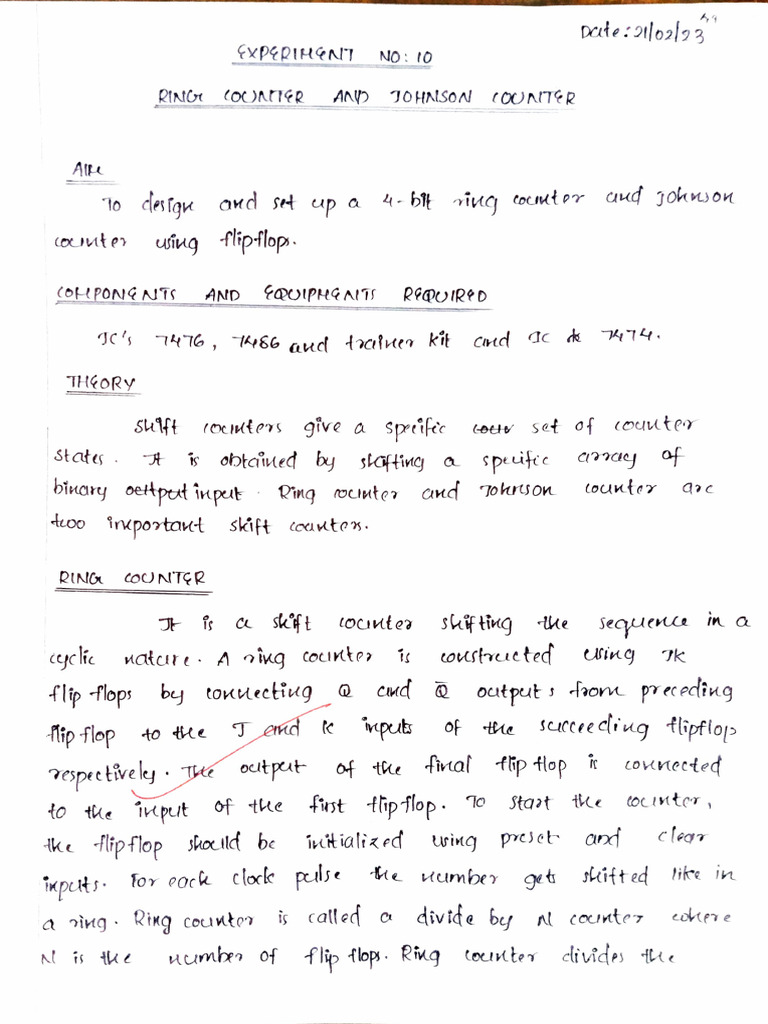 Date: 21/02/23
EXPERIMENT NO: 10
RING COUNTER AND JOHNSON COUNTER
AIM
To design and set up a 4-bit ring counter and Johnson
counter using flipflops.
COMPONENTS AND EQUIPMENTS REQUIRED
IC's 7476, 7486 and trainer kit and IC 7474.
THEORY
Shift counters give a specific set of counter
states. It is obtained by shifting a specific array of
binary output input. Ring counter and Johnson counter are
two important shift counters.
RING COUNTER
It is a shift counter shifting the sequence in a
cyclic nature. A ring counter is constructed using JK
flip flops by connecting Q and Q̅ outputs from preceding
flip flop to the J and K inputs of the succeeding flipflop
respectively. The output of the final flip flop is connected
to the input of the first flipflop. To start the counter,
the flipflop should be initialized using preset and clear
inputs. For each clock pulse the number gets shifted like in
a ring. Ring counter is called a divide by N counter where
N is the number of flip flops. Ring counter divides the